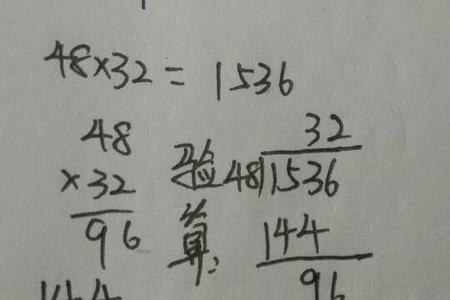 48×32=1536
48
×32
96
144
验算:
32
48)1536
144
96